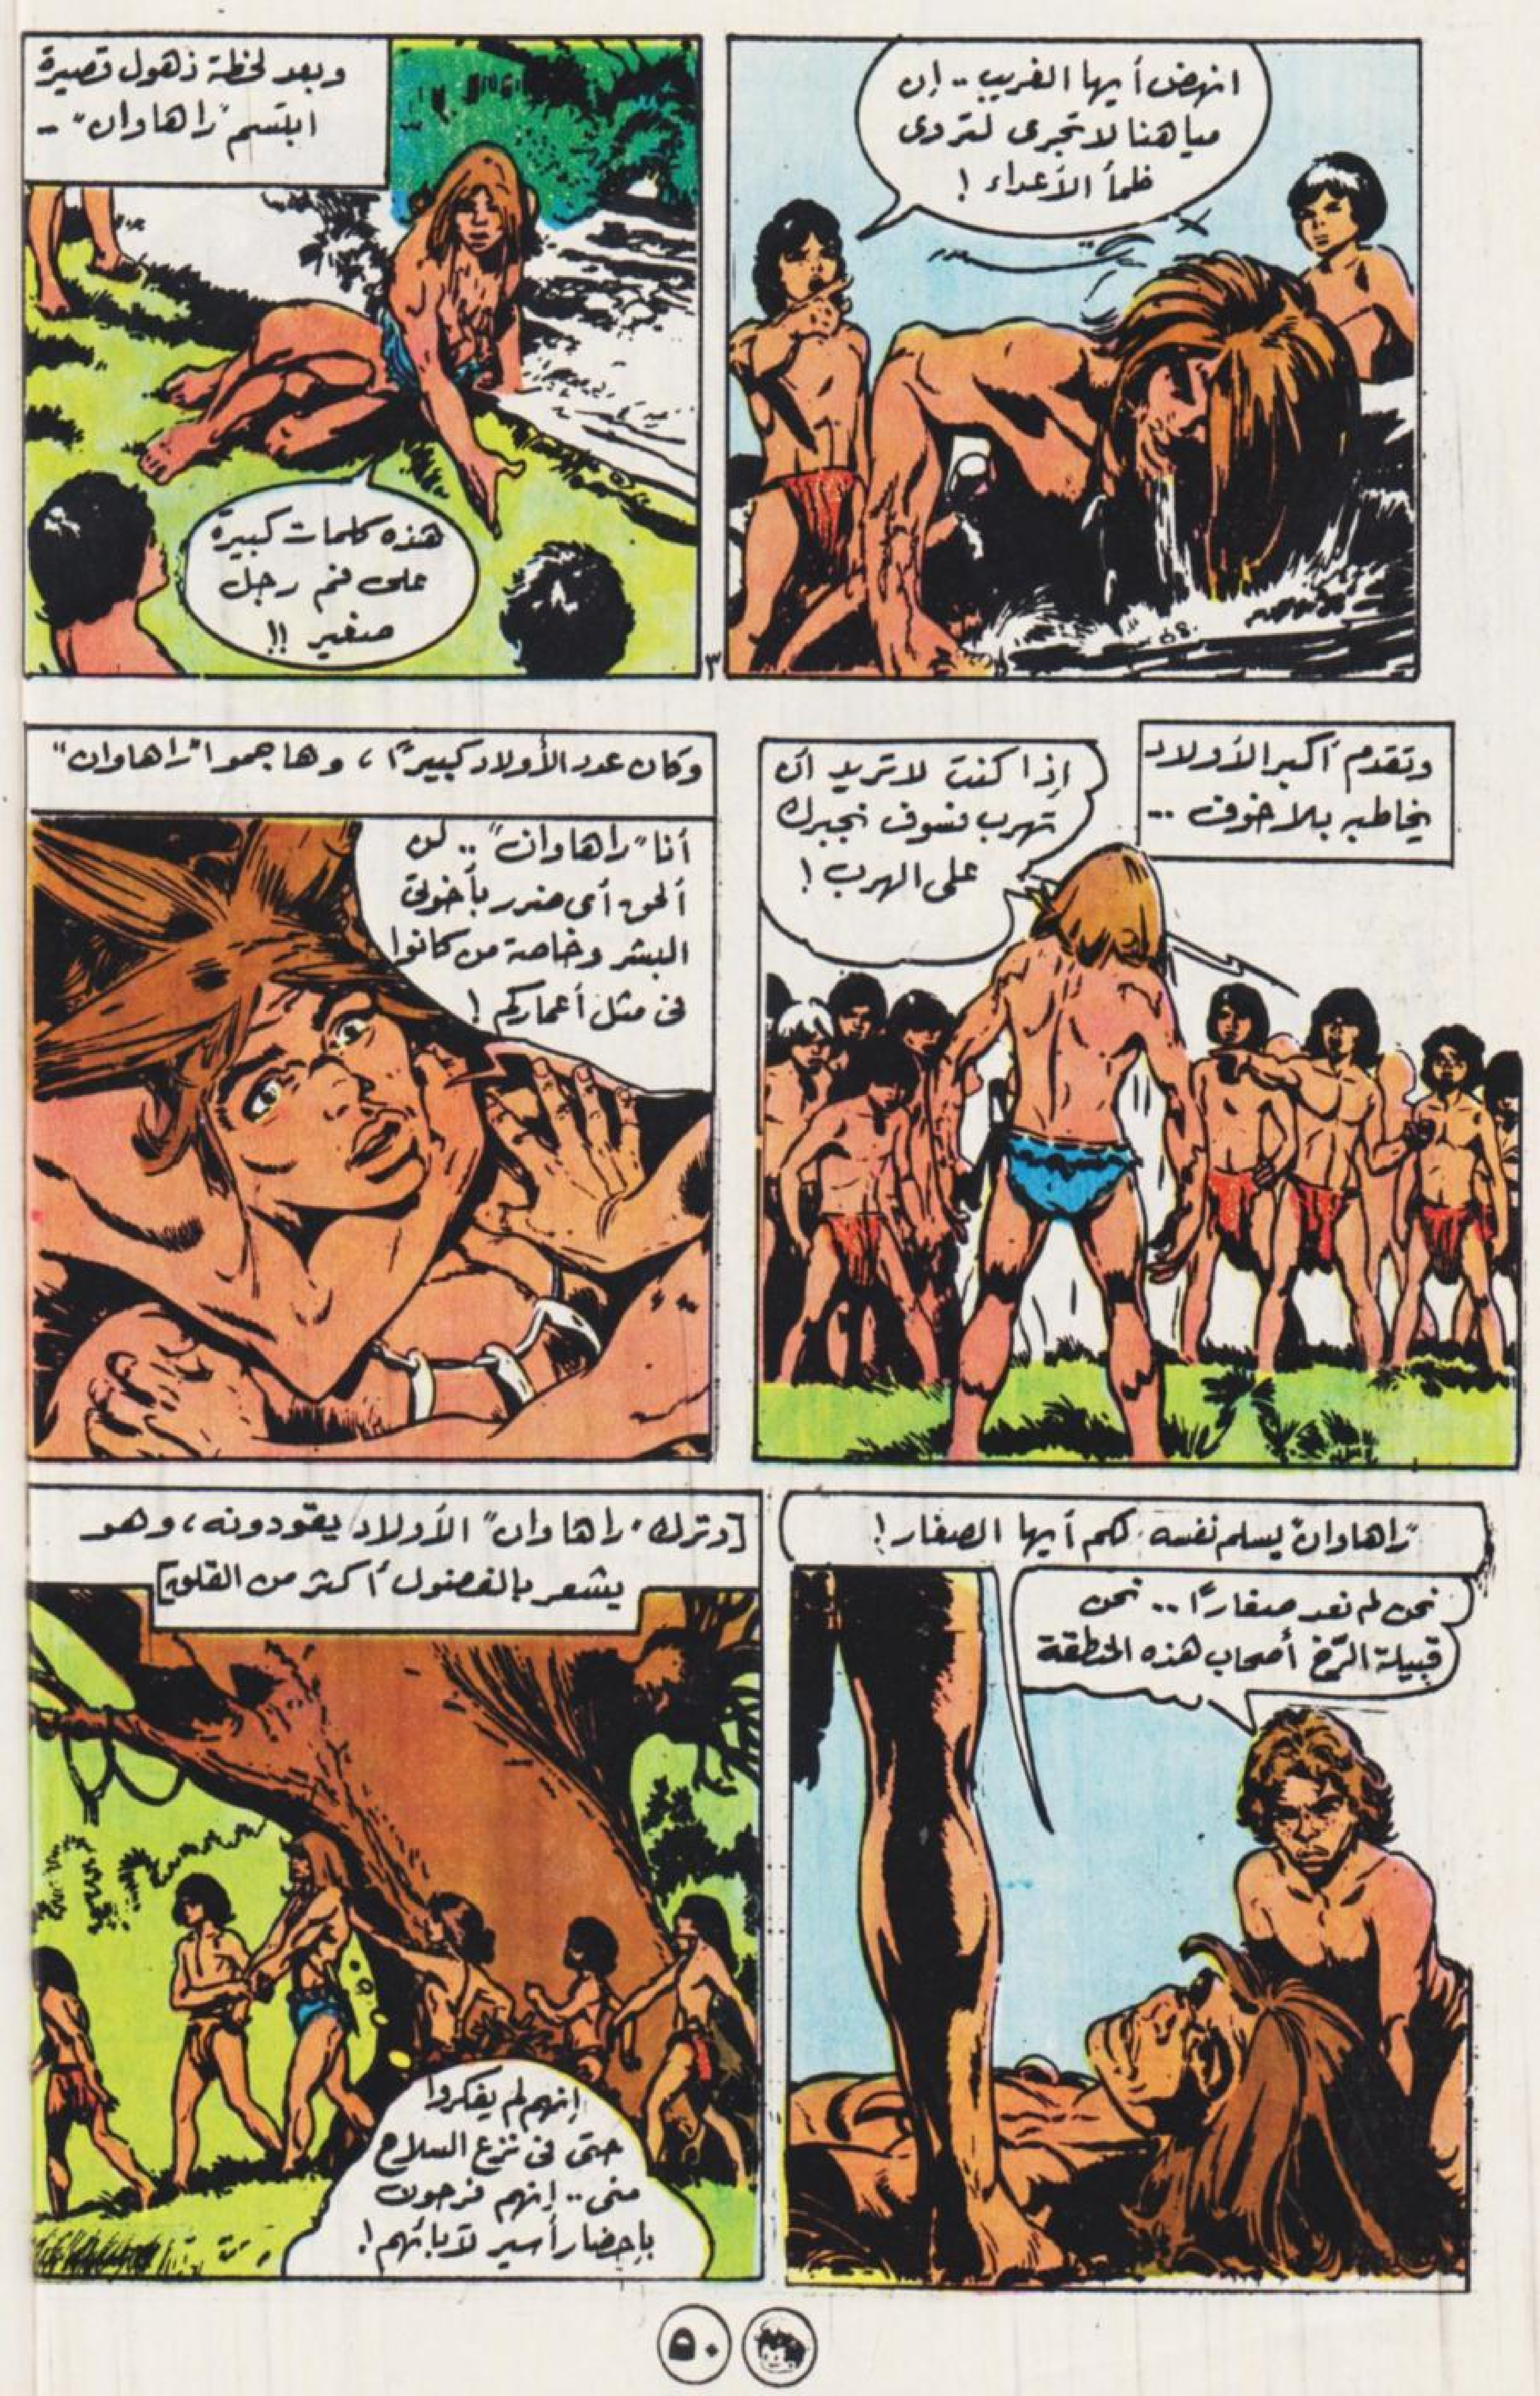 انهض أيها الغريب .. إن
مياهنا لا تجرى لتروى
ظمأ الأعداء !
وبعد لحظة ذهول قصيرة
ابتسم "راهاوان" --
هذه كلمات كبيرة
على فم رجل
صغير !!
٣
وتقدم أكبر الأولاد
يخاطبه بلا خوف ...
إذا كنت لا تريد أن
تهرب فسوف نجبرك
على الهرب !
وكان عدد الأولاد كبيرًا ، وهاجموا "راهاوان"
أنا "راهاوان" .. لن
ألحق أى ضرر بأخوتى
البشر وخاصة من كانوا
فى مثل أعماركم !
"راهاوان" يسلم نفسه لكم أيها الصغار !
نحن لم نعد صغارًا .. نحن
قبيلة أصحاب هذه المنطقة
[وترك "راهاوان" الأولاد يقودونه ، وهو
يشعر بالفضول أكثر من القلق]
إنهم لم يفكروا
حتى فى نزع السلاح
منى .. إنهم فرحون
بإحضار أسير لآبائهم !
٥٠